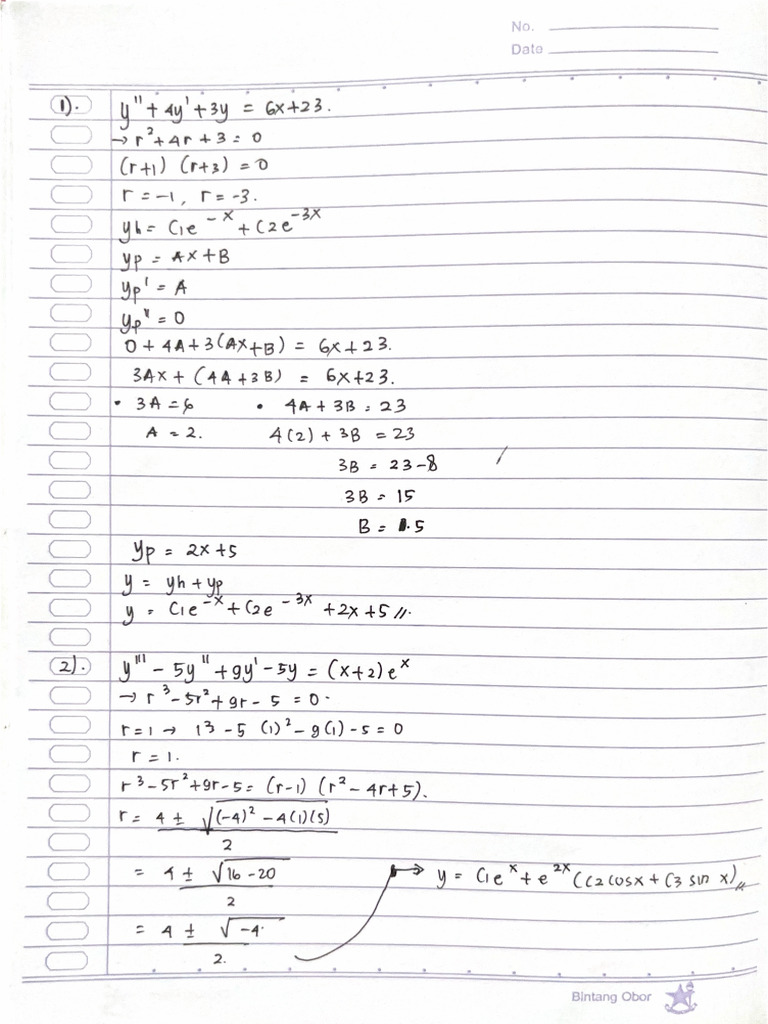 No.
Date
1). y'' + 4y' + 3y = 6x + 23.
→ r² + 4r + 3 = 0
(r+1) (r+3) = 0
r = -1, r = -3.
yh = C1e^-x + C2e^-3x
yp = Ax + B
yp' = A
yp'' = 0
0 + 4A + 3(Ax+B) = 6x + 23.
3Ax + (4A + 3B) = 6x + 23.
• 3A = 6 • 4A + 3B = 23
A = 2. 4(2) + 3B = 23
3B = 23 - 8
3B = 15
B = 5
yp = 2x + 5
y = yh + yp
y = C1e^-x + C2e^-3x + 2x + 5 //.
2). y''' - 5y'' + 9y' - 5y = (x+2)e^x
→ r³ - 5r² + 9r - 5 = 0.
r = 1 → 1³ - 5 (1)² - 9(1) - 5 = 0
r = 1.
r³ - 5r² + 9r - 5 = (r-1) (r² - 4r + 5).
r = 4 ± √(-4)² - 4(1)(5)
2
= 4 ± √16 - 20 → y = C1e^x + e^2x (C2 cos x + C3 sin x) //
2
= 4 ± √-4.
2.
Bintang Obor